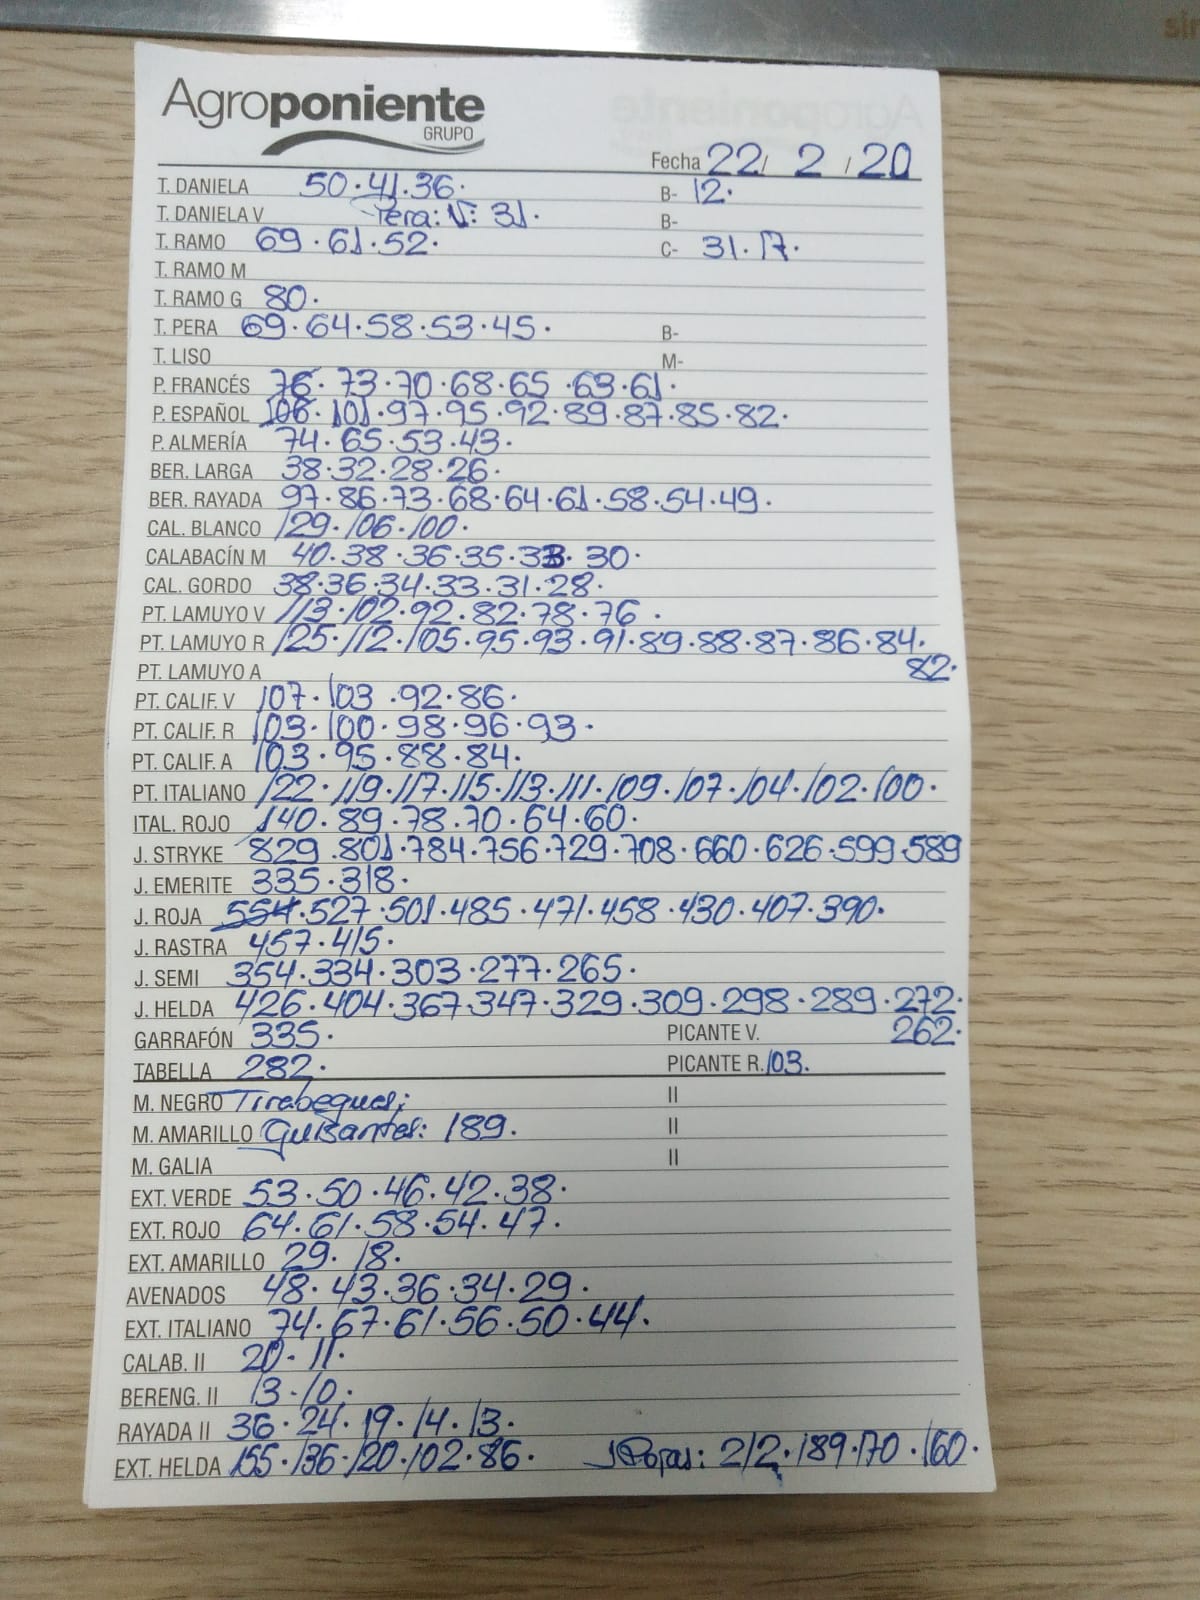 Agroponiente
GRUPO
Fecha 22/ 2 /20
T. DANIELA 50·41·36· B- 12·
T. DANIELA V Pera: V: 31· B-
T. RAMO 69·61·52· C- 31·17·
T. RAMO M
T. RAMO G 80·
T. PERA 69·64·58·53·45· B-
T. LISO M-
P. FRANCÉS 76·73·70·68·65·63·61·
P. ESPAÑOL 106·101·97·95·92·89·87·85·82·
P. ALMERÍA 74·65·53·43·
BER. LARGA 38·32·28·26·
BER. RAYADA 97·86·73·68·64·61·58·54·49·
CAL. BLANCO 129·106·100·
CALABACÍN M 40·38·36·35·33·30·
CAL. GORDO 38·36·34·33·31·28·
PT. LAMUYO V 113·102·92·82·78·76·
PT. LAMUYO R 125·112·105·95·93·91·89·88·87·86·84·
PT. LAMUYO A 82·
PT. CALIF. V 107·103·92·86·
PT. CALIF. R 103·100·98·96·93·
PT. CALIF. A 103·95·88·84·
PT. ITALIANO 122·119·117·115·113·111·109·107·104·102·100·
ITAL. ROJO 140·89·78·70·64·60·
J. STRYKE 829·801·784·756·729·708·660·626·599·589
J. EMERITE 335·318·
J. ROJA 554·527·501·485·471·458·430·407·390·
J. RASTRA 457·415·
J. SEMI 354·334·303·277·265·
J. HELDA 426·404·367·347·329·309·298·289·272·
GARRAFÓN 335· PICANTE V. 262·
TABELLA 282· PICANTE R. 103.
M. NEGRO Tirabeques; II
M. AMARILLO Guisantes: 189. II
M. GALIA II
EXT. VERDE 53·50·46·42·38·
EXT. ROJO 64·61·58·54·47·
EXT. AMARILLO 29·18·
AVENADOS 48·43·36·34·29·
EXT. ITALIANO 74·67·61·56·50·44·
CALAB. II 20·11·
BERENG. II 13·10·
RAYADA II 36·24·19·14·13·
EXT. HELDA 155·136·120·102·86· J Rojas: 212·189·170·160·